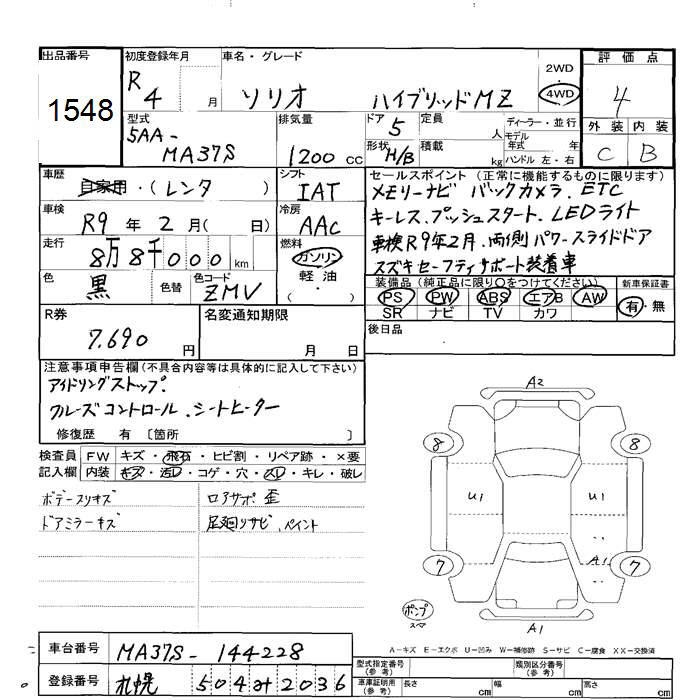 出品番号
1548
初度登録年月
R4 月
車名・グレード
ソリオ ハイブリッドMZ
2WD
・
4WD
評価点
4
外装 内装
C B
型式
5AA-
MA37S
排気量
1200 CC
ドア 5
形状 H/B
定員 人
積載 kg
ディーラー・並行
モデル
年式 年
ハンドル 左・右
車歴
自家用・(レンタ )
シフト
IAT
車検
R9 年 2 月( 日)
冷房
AAC
走行
8万8千000km
燃料
ガソリン
・
軽油
・
( )
色
黒 色替
色コード
ZMV
セールスポイント(正常に機能するものに限ります)
メモリーナビ バックカメラ、ETC
キーレス、プッシュスタート、LEDライト
車検R9年2月、両側パワースライドドア
スズキセーフティサポート装着車
装備品(純正品に限り○をつけてください)
PS PW ABS エアB AW
SR ナビ TV カワ
新車保証書
有・無
後日品
R券
7,690 円
名変通知期限
月 日
注意事項申告欄(不具合内容等は具体的に記入して下さい)
アイドリングストップ、
クルーズコントロール、シートヒーター
修復歴 有〔箇所 〕
検査員
記入欄
FW キズ・飛石・ヒビ割・リペア跡・×要
内装 キズ・汚レ・コゲ・穴・スレ・キレ・破レ
ボデースリキズ
ドアミラーキズ
ロアサポ 歪
足廻リサビ、ペイント
A2
8 8
U1 U1
A1
7 7
ポンプ
スマ
A1
A-キズ E-エクボ U-凹み W-補修跡 S-サビ C-腐食 XX-交換済
車台番号
MA37S-144228
登録番号
札幌 504 け 2036
型式指定番号
(参考)
類別区分番号
(参考)
車庫証明用
(参考)
長さ cm 幅 cm 高さ cm